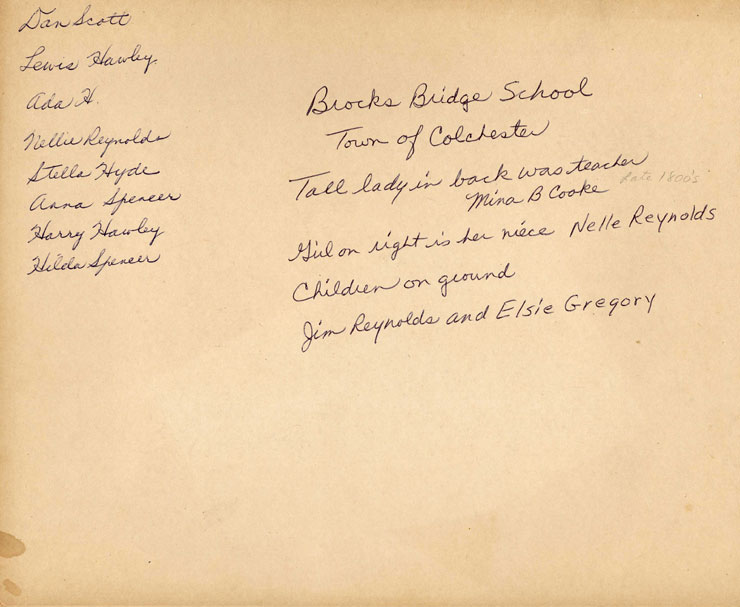 Dan Scott
Lewis Hawley
Ada H.
Nellie Reynolds
Stella Hyde
Anna Spencer
Harry Hawley
Hilda Spencer
Brocks Bridge School
Town of Colchester
Tall lady in back was teacher
Mina B Cooke
late 1800's
Girl on right is her niece Nelle Reynolds
Children on ground
Jim Reynolds and Elsie Gregory